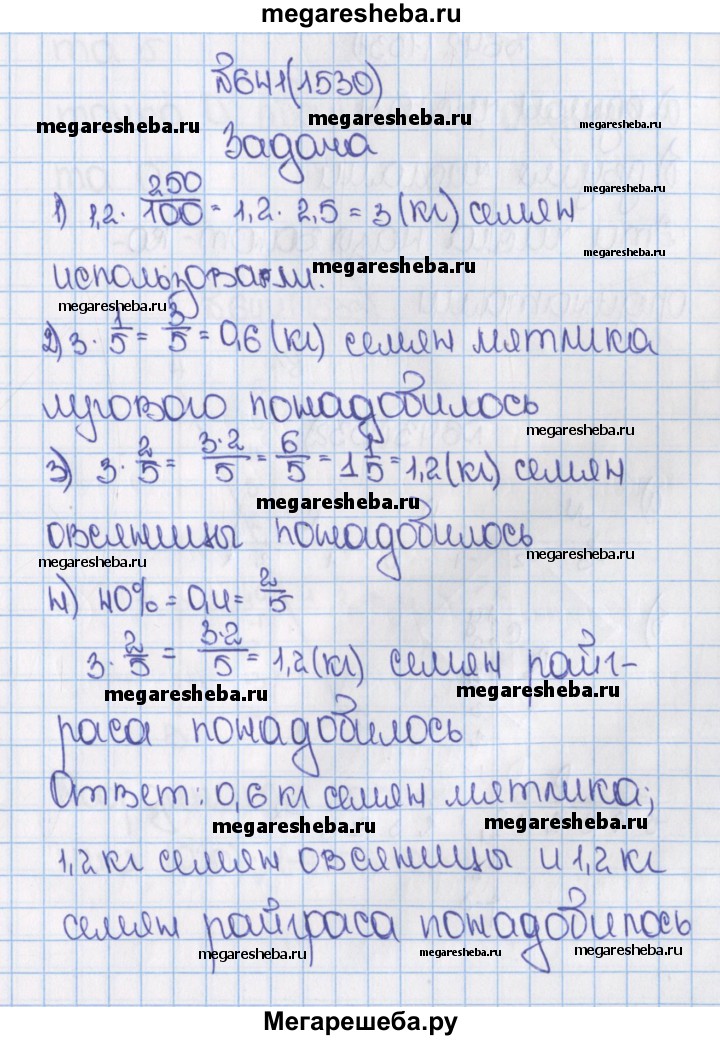 megaresheba.ru
№641(1530)
megaresheba.ru megaresheba.ru megaresheba.ru
Задача
1) 1,2 · 250/100 = 1,2 · 2,5 = 3 (кг) семян
использовали.
megaresheba.ru
megaresheba.ru
2) 3 · 1/5 = 3/5 = 0,6 (кг) семян мятлика
megaresheba.ru
лугового понадобилось
megaresheba.ru
3) 3 · 2/5 = 3·2/5 = 6/5 = 1 1/5 = 1,2 (кг) семян
megaresheba.ru
овсяницы понадобилось
megaresheba.ru megaresheba.ru
4) 40% = 0,4 = 2/5
3 · 2/5 = 3·2/5 = 1,2 (кг) семян райг-
megaresheba.ru megaresheba.ru
раса понадобилось
Ответ: 0,6 кг семян мятлика;
megaresheba.ru megaresheba.ru
1,2 кг семян овсяницы и 1,2 кг
семян райграса понадобилось
megaresheba.ru megaresheba.ru megaresheba.ru
Мегарешеба.ру